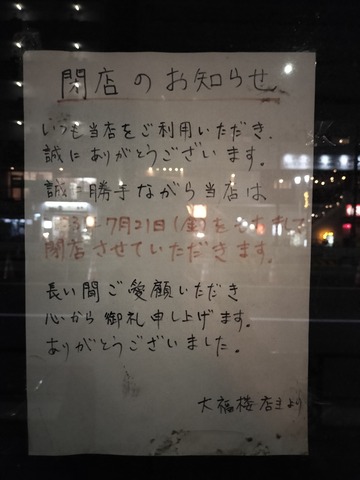 閉店のお知らせ
いつも当店をご利用いただき、
誠にありがとうございます。
誠に勝手ながら当店は
7月21日(金)をもちまして
閉店させていただきます。
長い間ご愛顧いただき
心から御礼申し上げます。
ありがとうございました。
大福楼店主より